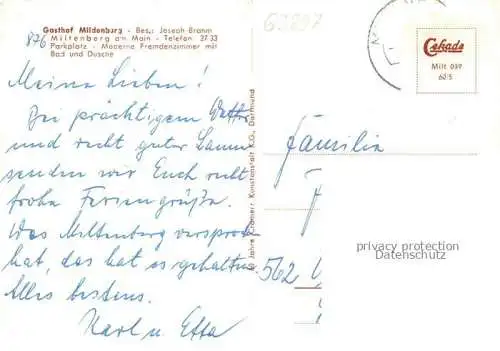 Gasthof Mildenburg - Bes.: Joseph Bramm
Miltenberg am Main - Telefon 27 33
Parkplatz - Moderne Fremdenzimmer mit
Bad und Dusche
876
Meine Lieben!
Bei prächtigem Wetter
und recht guter Laune
senden wir Euch recht
frohe Feriengrüße.
Was Miltenberg versproch
hat, das hat es gehalten.
Alles bestens.
Karl u. Etta
Jahre Cramers Kunstanstalt K.G., Dortmund
Cekade
Milt 059
60/5
Familie
562
privacy protection
Datenschutz